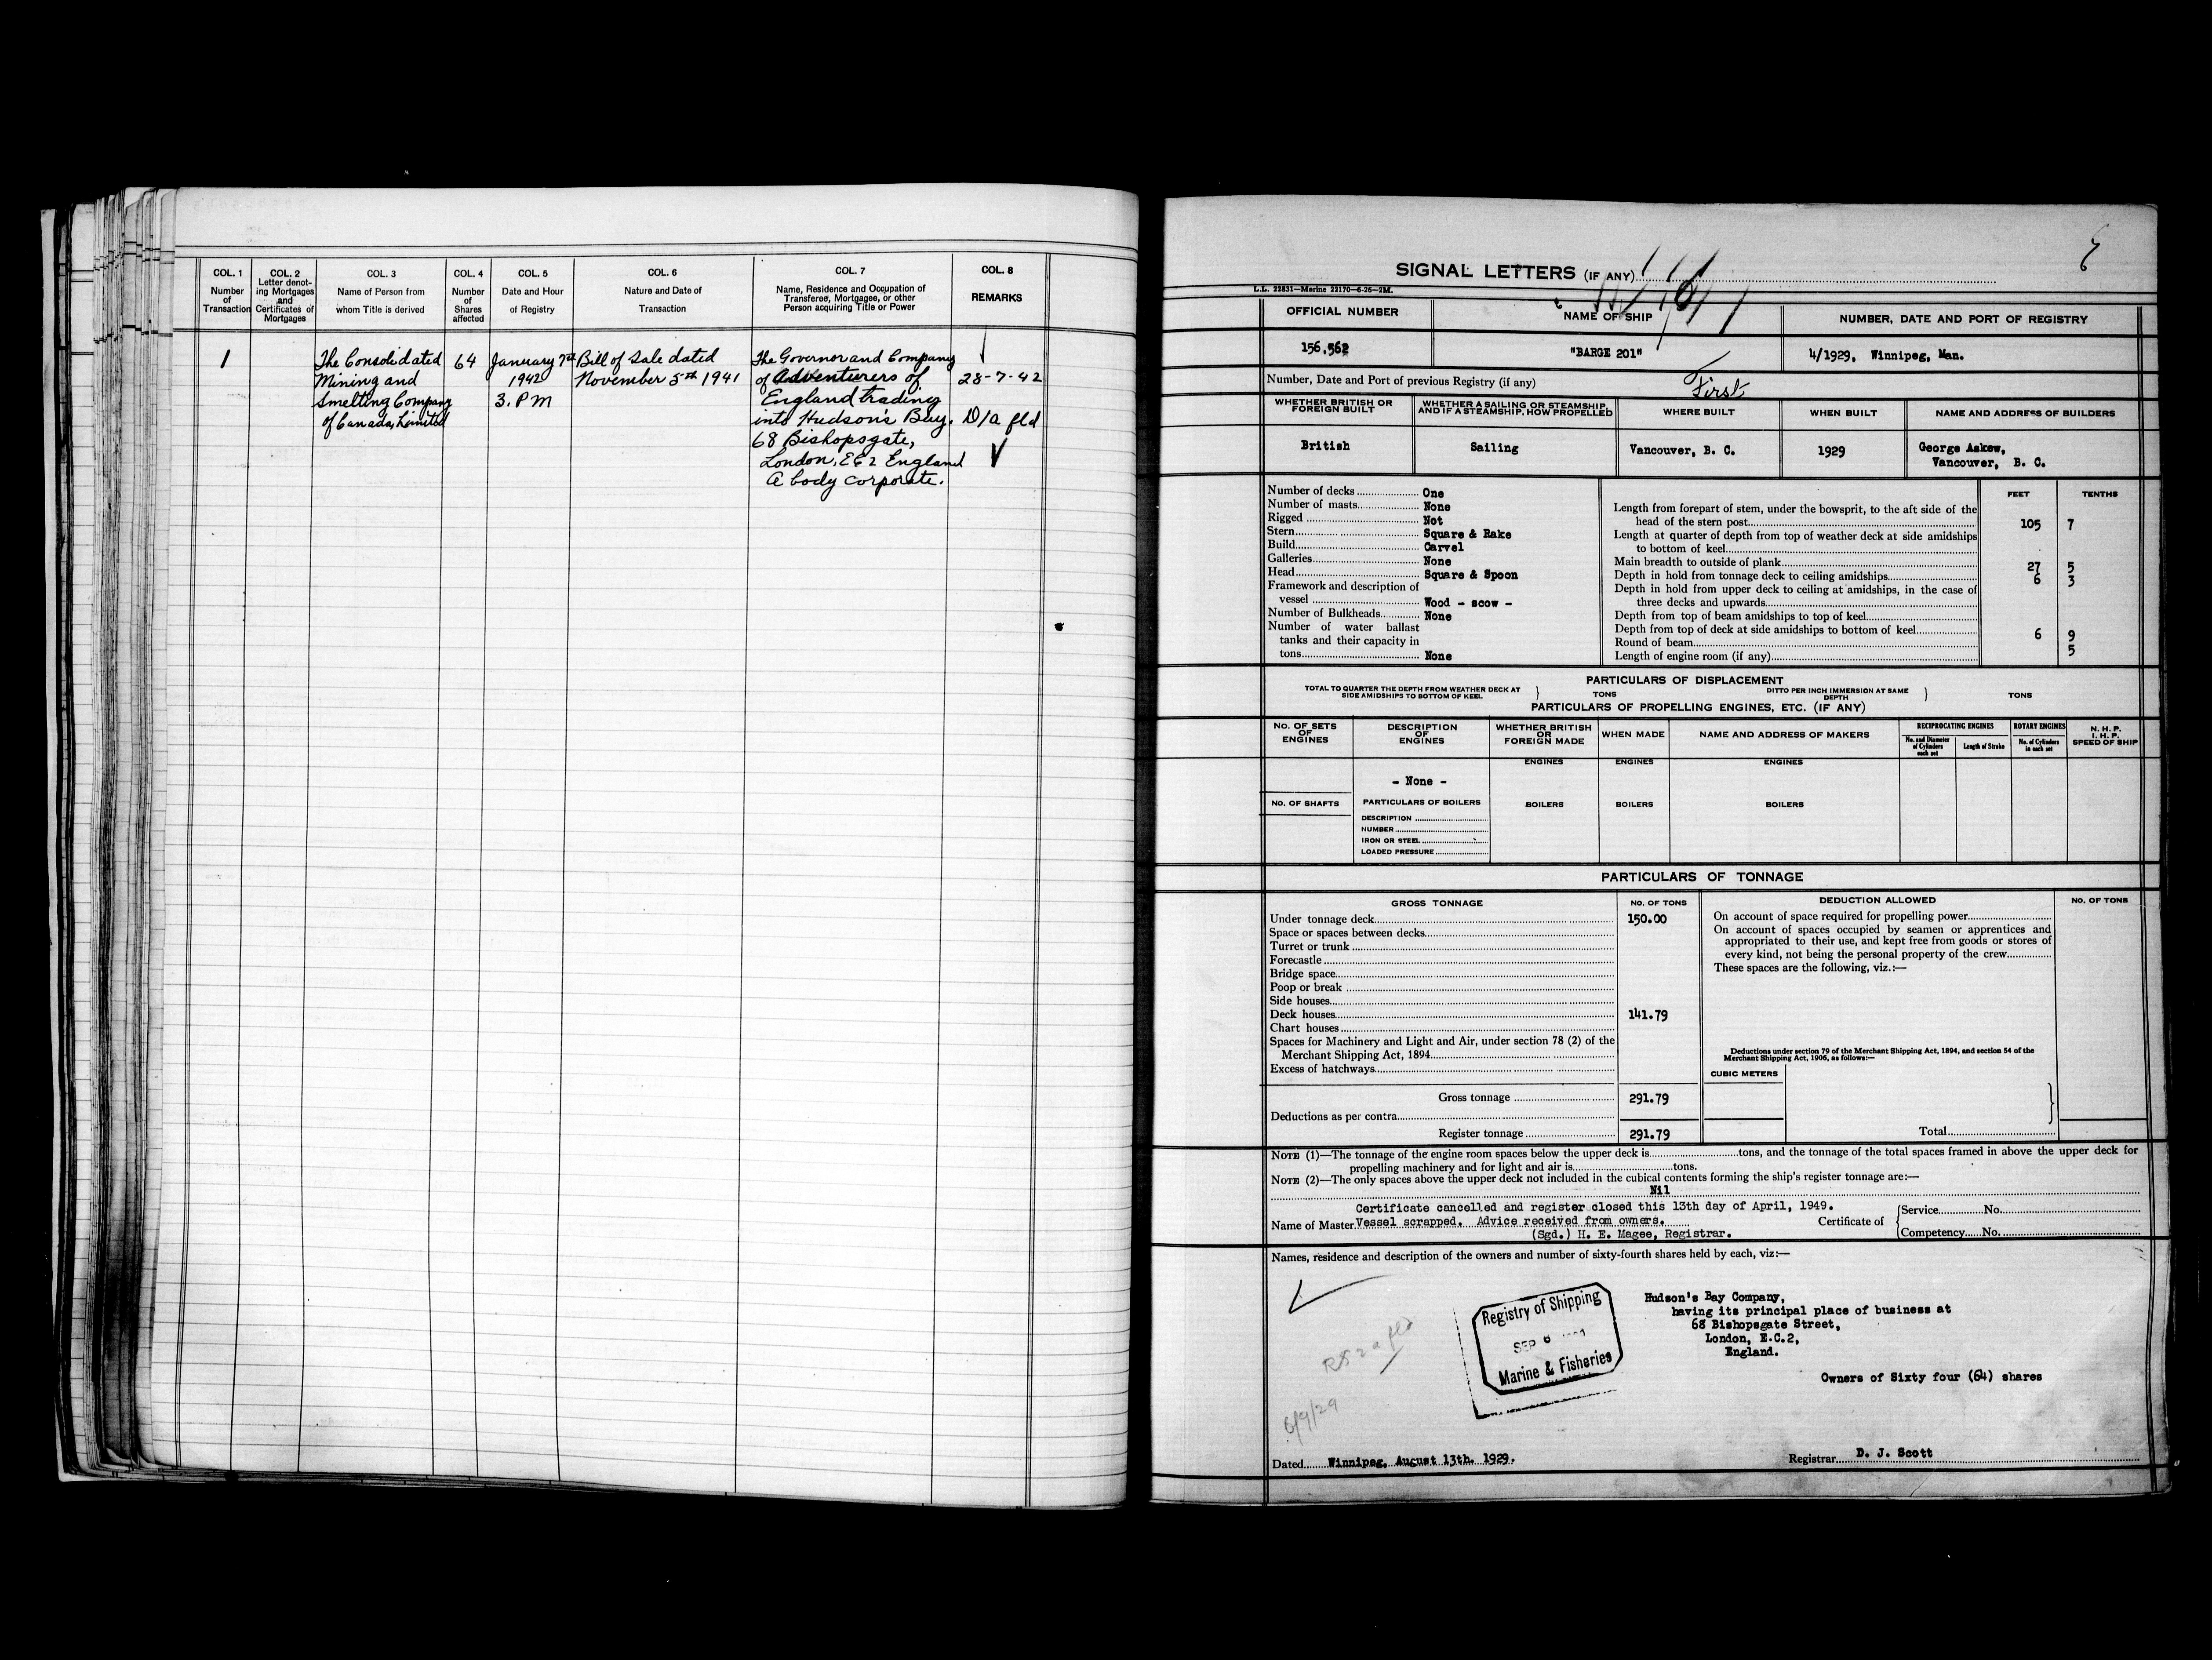 COL. 1
Number
of
Transaction
COL. 2
Letter denot-
ing Mortgages
and
Certificates of
Mortgages
COL. 3
Name of Person from
whom Title is derived
COL. 4
Number
of
Shares
affected
COL. 5
Date and Hour
of Registry
COL. 6
Nature and Date of
Transaction
COL. 7
Name, Residence and Occupation of
Transferee, Mortgagee, or other
Person acquiring Title or Power
COL. 8
REMARKS
1
The Consolidated
Mining and
Smelting Company
of Canada, Limited
64
January 7th
1942
3. P M
Bill of Sale dated
November 5th 1941
The Governor and Company
of Adventurers of
England trading
into Hudson's Bay.
68 Bishopsgate,
London, E C 2 England
A body corporate.
28-7-42
D/a fld
SIGNAL LETTERS (IF ANY)
L.L. 22831—Marine 22170—6-26—2M.
OFFICIAL NUMBER
NAME OF SHIP
NUMBER, DATE AND PORT OF REGISTRY
156,562
"BARGE 201"
4/1929, Winnipeg, Man.
Number, Date and Port of previous Registry (if any)
First
WHETHER BRITISH OR
FOREIGN BUILT
WHETHER A SAILING OR STEAMSHIP,
AND IF A STEAMSHIP, HOW PROPELLED
WHERE BUILT
WHEN BUILT
NAME AND ADDRESS OF BUILDERS
British
Sailing
Vancouver, B. C.
1929
George Askew,
Vancouver, B. C.
Number of decks One
Number of masts None
Rigged Not
Stern Square & Rake
Build Carvel
Galleries None
Head Square & Spoon
Framework and description of
vessel Wood - scow -
Number of Bulkheads None
Number of water ballast
tanks and their capacity in
tons None
FEET TENTHS
Length from forepart of stem, under the bowsprit, to the aft side of the
head of the stern post 105 7
Length at quarter of depth from top of weather deck at side amidships
to bottom of keel
Main breadth to outside of plank 27 5
Depth in hold from tonnage deck to ceiling amidships 6 3
Depth in hold from upper deck to ceiling at amidships, in the case of
three decks and upwards
Depth from top of beam amidships to top of keel
Depth from top of deck at side amidships to bottom of keel 6 9
Round of beam 5
Length of engine room (if any)
PARTICULARS OF DISPLACEMENT
TOTAL TO QUARTER THE DEPTH FROM WEATHER DECK AT
SIDE AMIDSHIPS TO BOTTOM OF KEEL
TONS
DITTO PER INCH IMMERSION AT SAME
DEPTH
TONS
PARTICULARS OF PROPELLING ENGINES, ETC. (IF ANY)
No. OF SETS
OF
ENGINES
DESCRIPTION
OF
ENGINES
WHETHER BRITISH
OR
FOREIGN MADE
WHEN MADE
NAME AND ADDRESS OF MAKERS
RECIPROCATING ENGINES
No. and Diameter
of Cylinders
each set
Length of Stroke
ROTARY ENGINES
No. of Cylinders
in each set
N. H. P.
I. H. P.
SPEED OF SHIP
ENGINES
ENGINES
ENGINES
- None -
NO. OF SHAFTS
PARTICULARS OF BOILERS
BOILERS
BOILERS
BOILERS
DESCRIPTION
NUMBER
IRON OR STEEL
LOADED PRESSURE
PARTICULARS OF TONNAGE
GROSS TONNAGE
NO. OF TONS
Under tonnage deck 150.00
Space or spaces between decks
Turret or trunk
Forecastle
Bridge space
Poop or break
Side houses
Deck houses 141.79
Chart houses
Spaces for Machinery and Light and Air, under section 78 (2) of the
Merchant Shipping Act, 1894
Excess of hatchways
Gross tonnage 291.79
Deductions as per contra
Register tonnage 291.79
DEDUCTION ALLOWED
NO. OF TONS
On account of space required for propelling power
On account of spaces occupied by seamen or apprentices and
appropriated to their use, and kept free from goods or stores of
every kind, not being the personal property of the crew
These spaces are the following, viz.:—
Deductions under section 79 of the Merchant Shipping Act, 1894, and section 54 of the
Merchant Shipping Act, 1906, as follows:—
CUBIC METERS
Total
NOTE (1)—The tonnage of the engine room spaces below the upper deck is tons, and the tonnage of the total spaces framed in above the upper deck for
propelling machinery and for light and air is tons.
NOTE (2)—The only spaces above the upper deck not included in the cubical contents forming the ship's register tonnage are:—
Nil
Certificate cancelled and register closed this 13th day of April, 1949.
Name of Master Vessel scrapped. Advice received from owners.
(Sgd.) H. E. Magee, Registrar.
Certificate of
Service No.
Competency No.
Names, residence and description of the owners and number of sixty-fourth shares held by each, viz:—
Hudson's Bay Company,
having its principal place of business at
68 Bishopsgate Street,
London, E.C.2,
England.
Owners of Sixty four (64) shares
Registry of Shipping
SEP 6
Marine & Fisheries
6/9/29
Dated Winnipeg, August 13th. 1929.
Registrar D. J. Scott